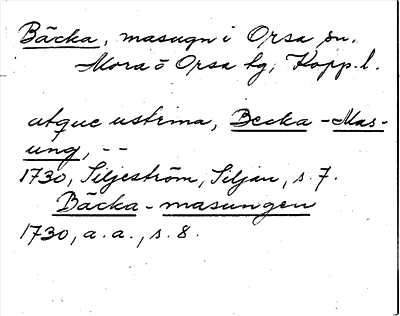 Bäcka, masugn i Orsa sn.
Mora o Orsa tg, Kopp. l.
atque ustrina, Becka-Mas-
ung, --
1730, Siljeström, Siljan, s. 7.
Bäcka-masungen
1730, a. a., s. 8.